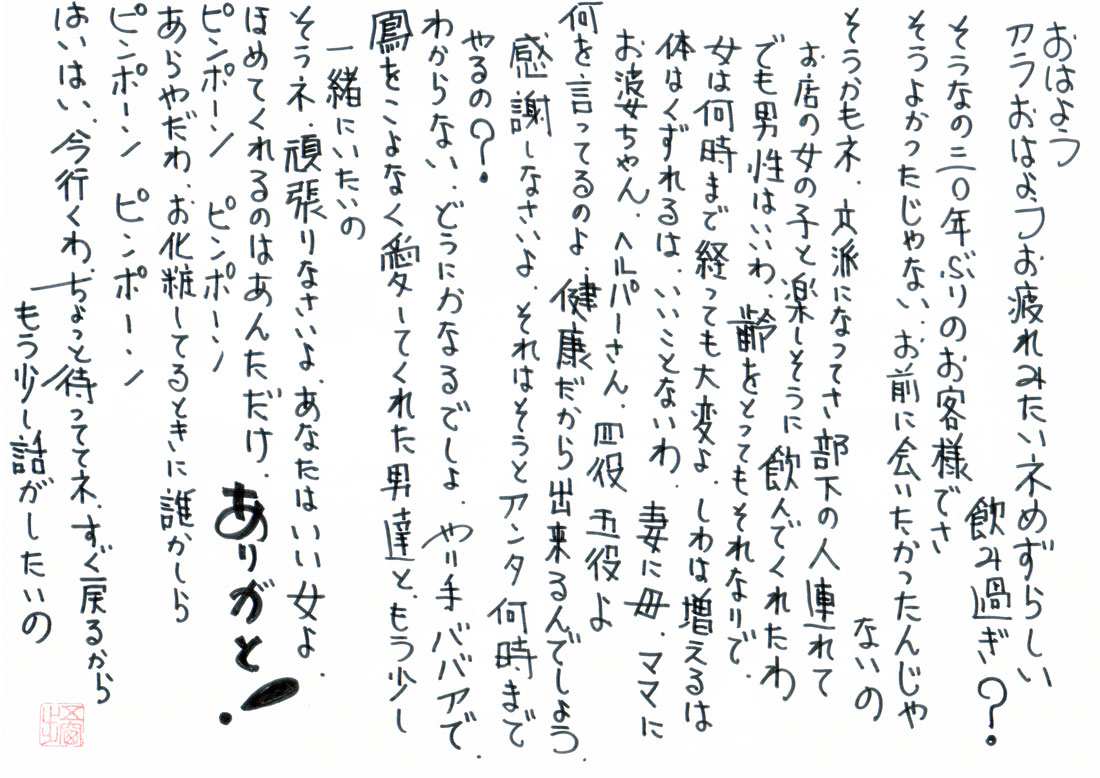 おはよう
アラおはよっつお疲れみたいネめずらしい
飲み過ぎ?
そうなの三〇年ぶりのお客様でさ
そうよかったじゃない、お前に会いたかったんじゃ
ないの
そうかもネ、立派になってさ部下の人連れて
お店の女の子と楽しそうに飲んでくれたわ
でも男性はいいわ、齢をとってもそれなりで、
女は何時まで経っても大変よ、しわは増えるは
体はくずれるは、いいことないわ、妻に母、ママに
お婆ちゃん、ヘルパーさん、四役五役よ
何を言ってるのよ、健康だから出来るんでしょう、
感謝しなさいよ、それはそうとアンタ何時まで
やるの?
わからない、どうにかなるでしょ、やり手ババアで、
鳳をこよなく愛してくれた男達と、もう少し
一緒にいたいの
そうネ、頑張りなさいよ、あなたはいい女よ、
ほめてくれるのはあんただけ、ありがと!
ピンポーン ピンポーン
あらやだわ、お化粧してるときに誰かしら
ピンポーン ピンポーン
はいはい、今行くわ、ちょっと待っててネ、すぐ戻るから
もう少し話がしたいの